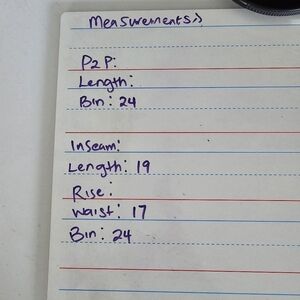 Measurements:
P2P:
Length:
Bin: 24
Inseam:
Length: 19
Rise:
Waist: 17
Bin: 24